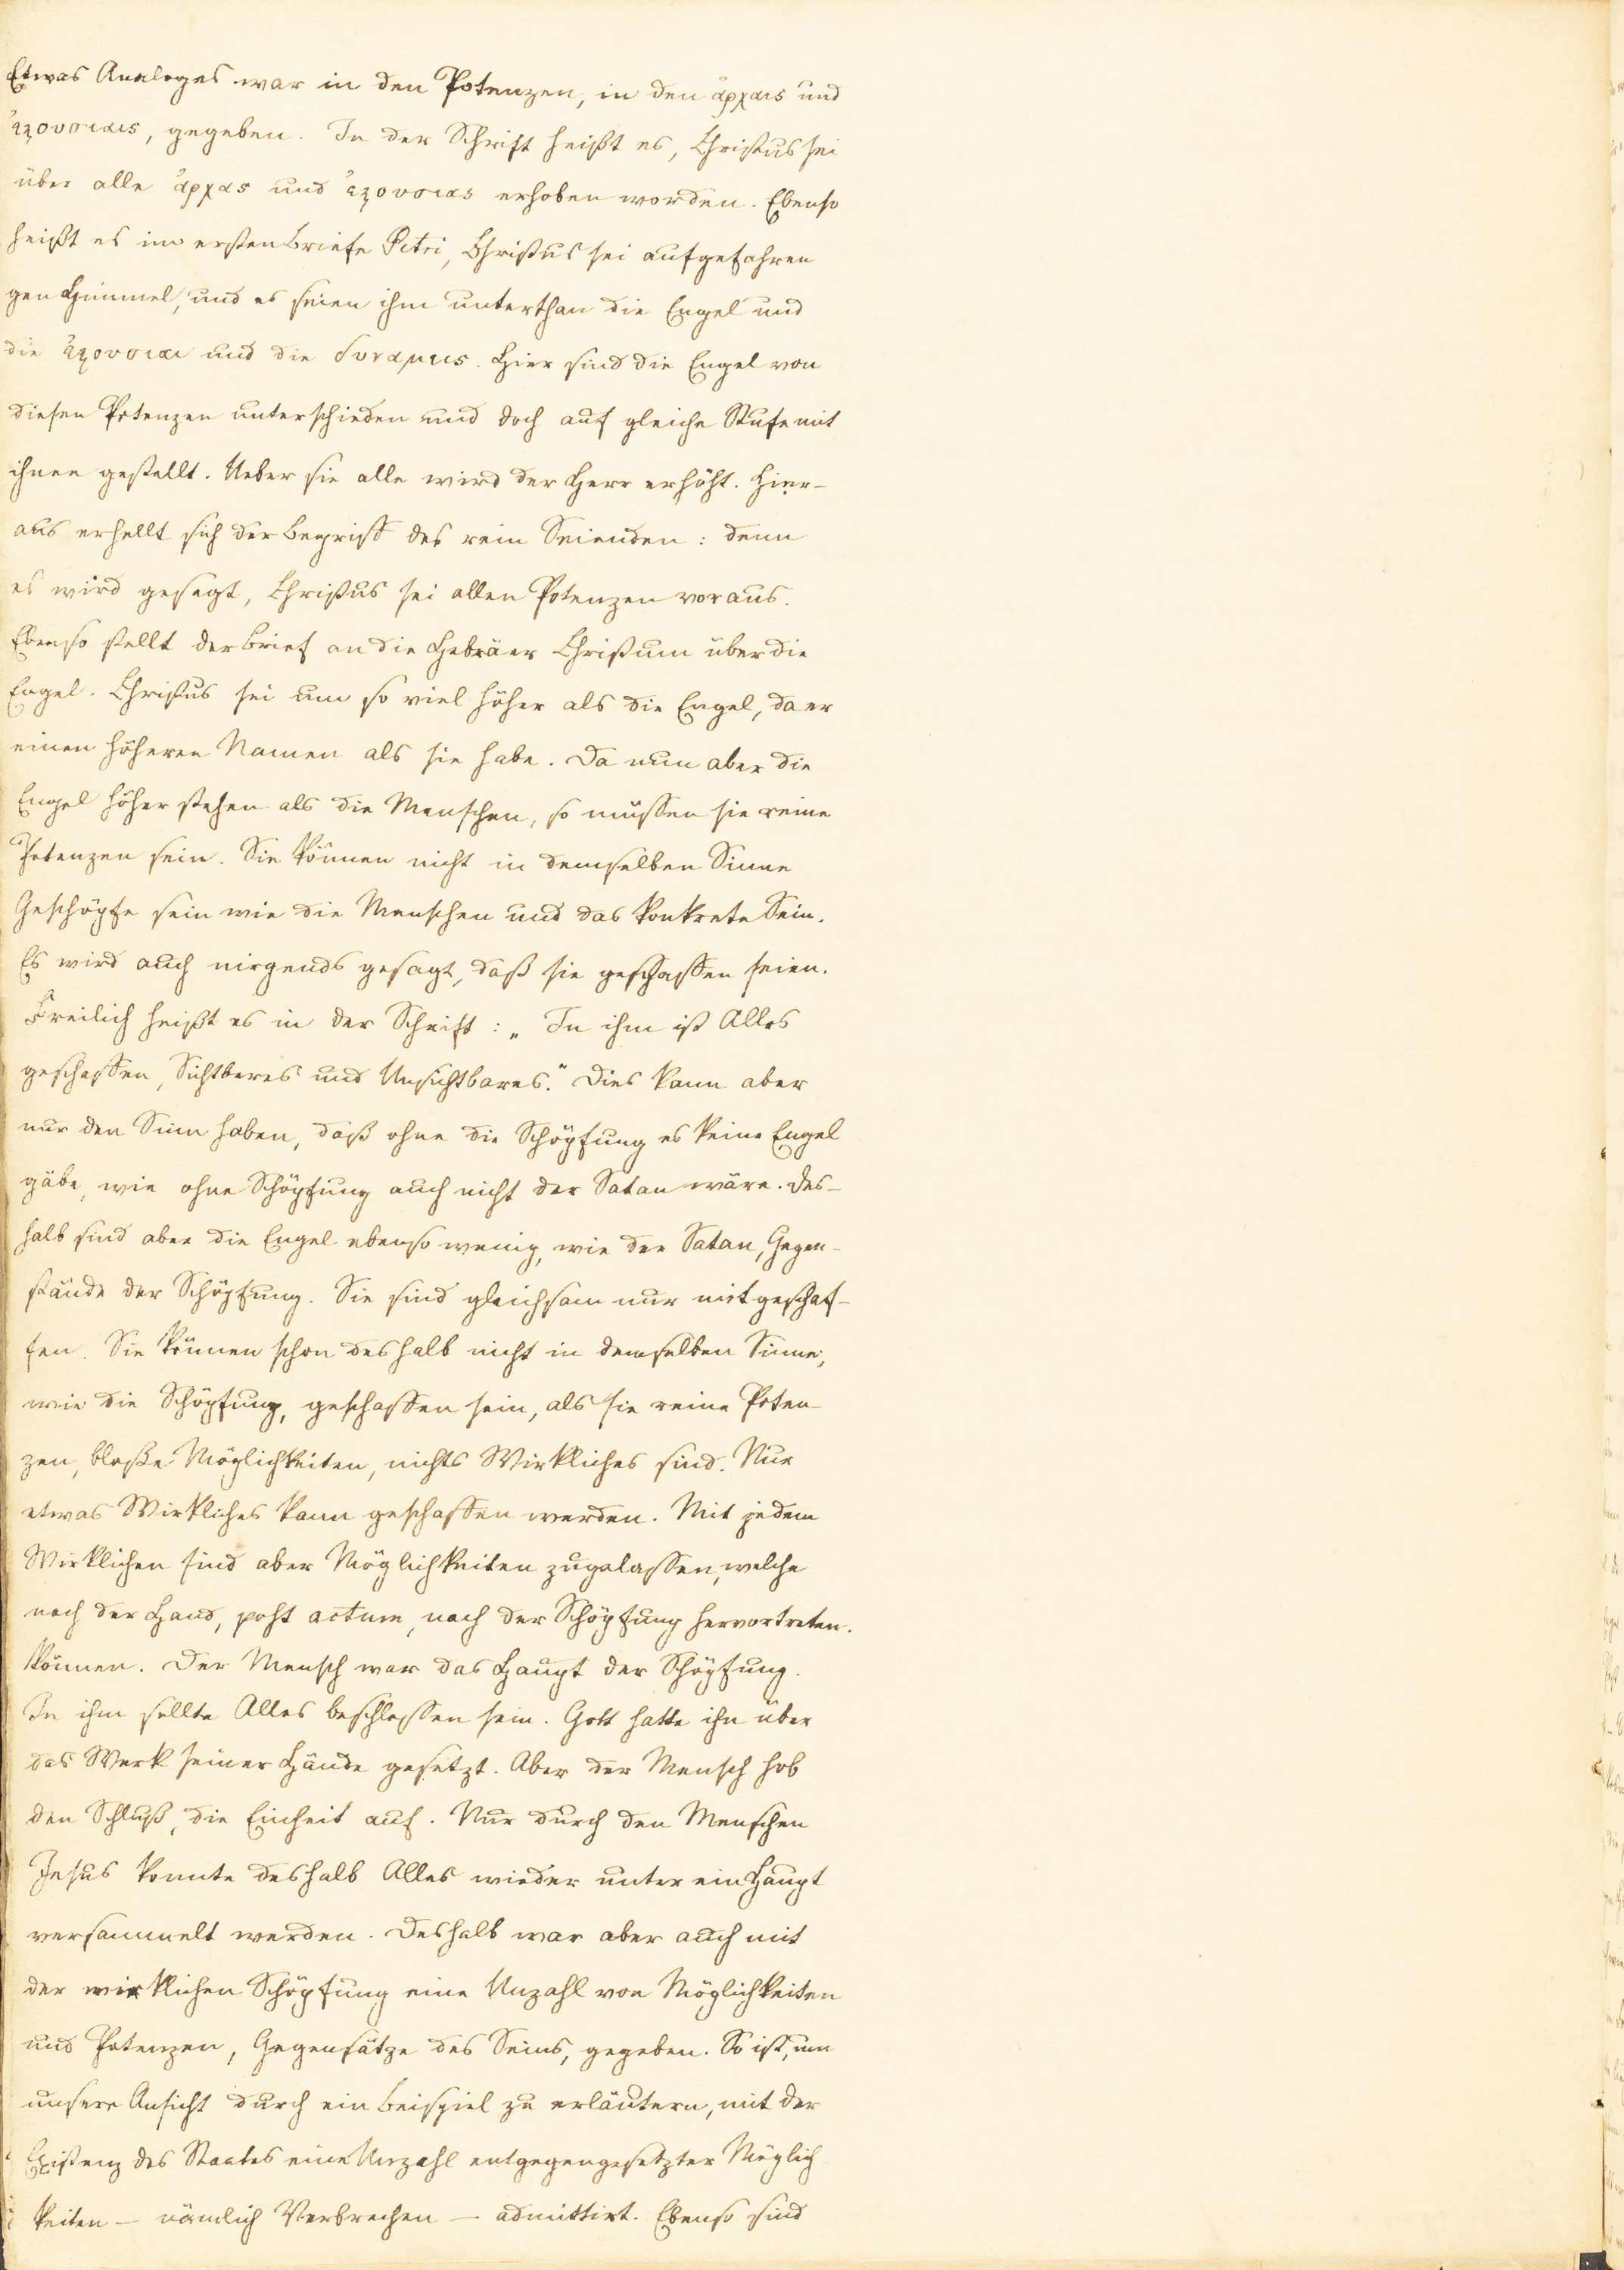 Etwas Analoges war in den Potenzen, in den ἀρχαις und
ἐξουσιαις, gegeben. In der Schrift heißt es, Christus sei
über alle ἀρχας und ἐξουσιας erhoben worden. Ebenso
heißt es im ersten Briefe Petri, Christus sei aufgefahren
gen Himmel, und es seien ihm unterthan die Engel und
die ἐξουσιαι und die δυναμεις. Hier sind die Engel von
diesen Potenzen unterschieden und doch auf gleiche Stufe mit
ihnen gestellt. Ueber sie alle wird der Herr erhöht. Hier-
aus erhellt sich der Begriff des rein Seienden: denn
es wird gesagt, Christus sei allen Potenzen voraus.
Ebenso stellt der Brief an die Hebräer Christum über die
Engel. Christus sei um so viel höher als die Engel, da er
einen höheren Namen als sie habe. Da nun aber die
Engel höher stehen als die Menschen, so müssen sie reine
Potenzen sein. Sie können nicht in demselben Sinne
Geschöpfe sein wie die Menschen und das konkrete Sein.
Es wird auch nirgends gesagt, daß sie geschaffen seien.
Freilich heißt es in der Schrift: „In ihm ist Alles
geschaffen, Sichtbares und Unsichtbares.“ Dies kann aber
nur den Sinn haben, daß ohne die Schöpfung es keine Engel
gäbe, wie ohne Schöpfung auch nicht der Satan wäre. Des-
halb sind aber die Engel ebenso wenig, wie der Satan, Gegen-
stände der Schöpfung. Sie sind gleichsam nur mit geschaf-
fen. Sie können schon deshalb nicht in demselben Sinne,
wie die Schöpfung, geschaffen sein, als sie reine Poten-
zen, bloße Möglichkeiten, nichts Wirkliches sind. Nur
etwas Wirkliches kann geschaffen werden. Mit jedem
Wirklichen sind aber Möglichkeiten zugelassen, welche
nach der Hand, post actum, nach der Schöpfung hervortreten
können. Der Mensch war das Haupt der Schöpfung.
In ihm sollte Alles beschlossen sein. Gott hatte ihn über
das Werk seiner Hände gesetzt. Aber der Mensch hob
den Schluß, die Einheit auf. Nur durch den Menschen
Jesus konnte deshalb Alles wieder unter ein Haupt
versammelt werden. Deshalb war aber auch mit
der wirklichen Schöpfung eine Unzahl von Möglichkeiten
und Potenzen, Gegensätze des Seins, gegeben. So ist, um
unsere Ansicht durch ein Beispiel zu erläutern, mit der
Existenz des Staates eine Unzahl entgegengesetzter Möglich
keiten — nämlich Verbrechen — admittirt. Ebenso sind